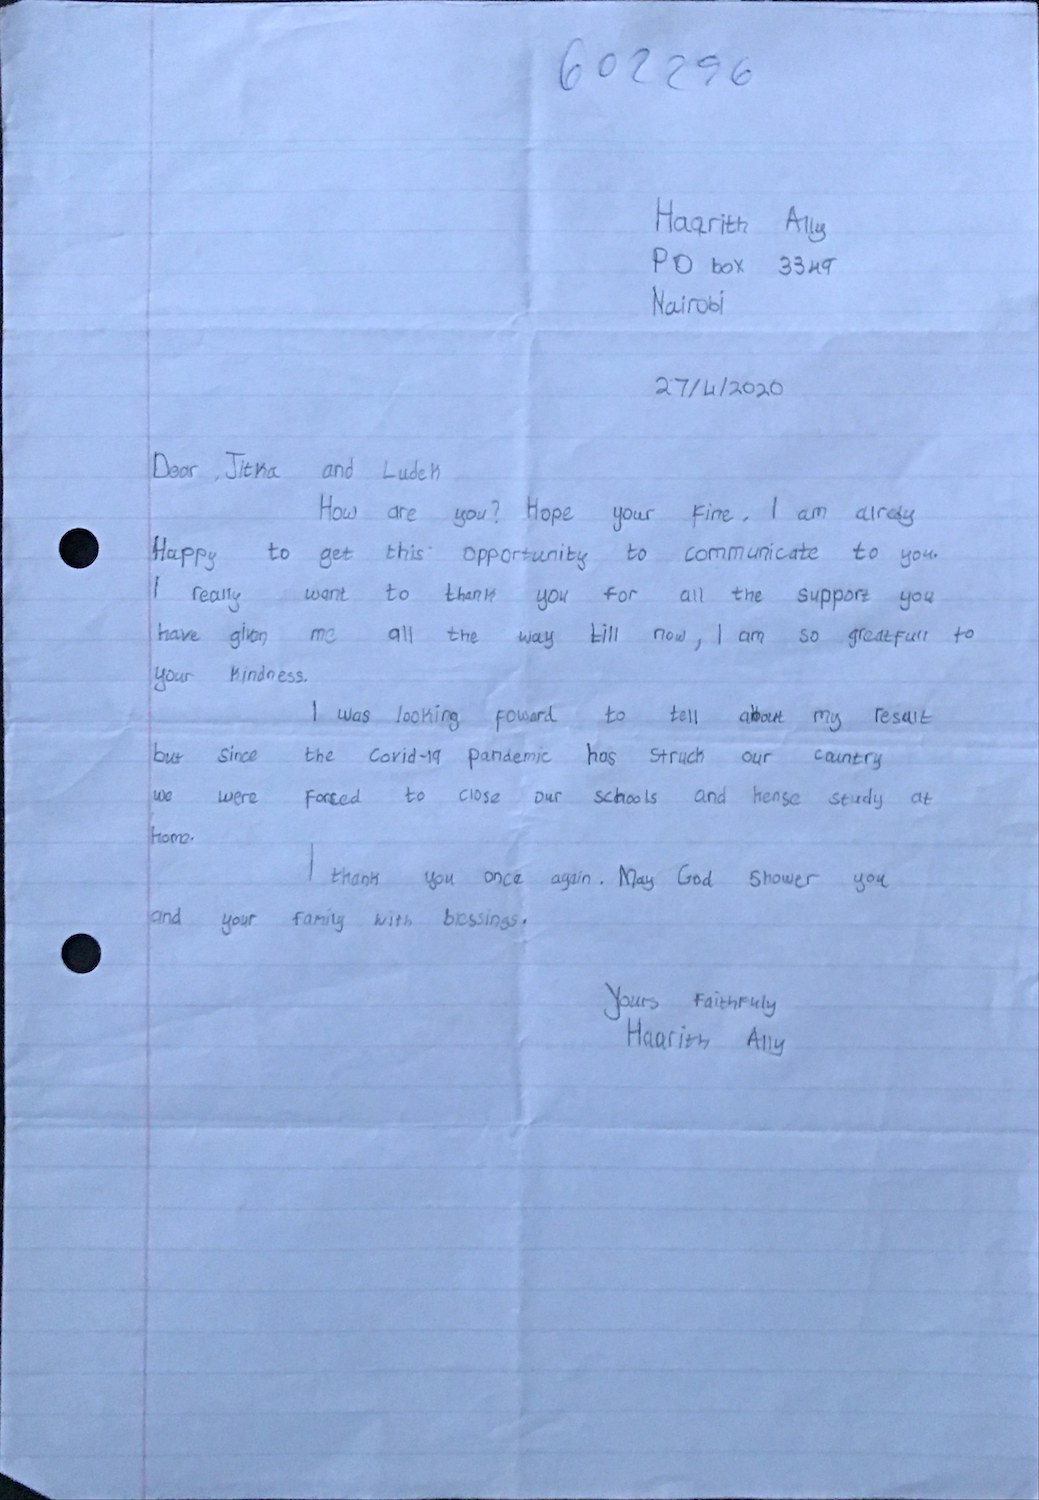 602296
Haarith Ally
PO box 3349
Nairobi
27/4/2020
Dear, Jitka and Ludek
How are you? Hope your fine. I am alredy
Happy to get this opportunity to communicate to you.
I really want to thank you for all the support you
have given me all the way till now, I am so greatfull to
your kindness.
I was looking foward to tell about my result
but since the Covid-19 pandemic has struck our country
we were forced to close our schools and hense study at
home.
I thank you once again. May God shower you
and your family with blessings.
Yours Faithfuly
Haarith Ally